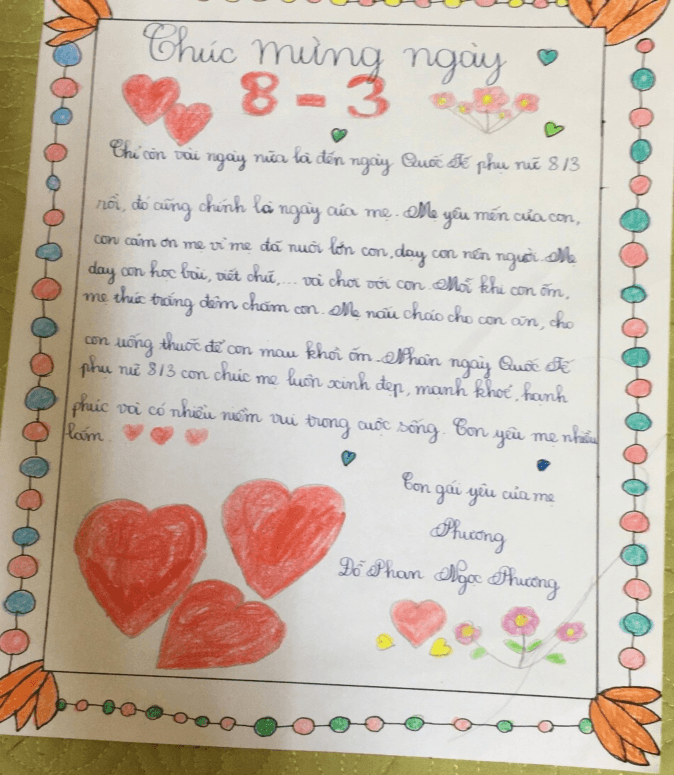 Chúc mừng ngày
8 - 3
Chỉ còn vài ngày nữa là đến ngày Quốc Tế phụ nữ 8/3
rồi, đó cũng chính là ngày của mẹ. Mẹ yêu mến của con,
con cám ơn mẹ vì mẹ đã nuôi lớn con, dạy con nên người. Mẹ
dạy con học bài, viết chữ,... và chơi với con. Mỗi khi con ốm,
mẹ thức trắng đêm chăm con. Mẹ nấu cháo cho con ăn, cho
con uống thuốc để con mau khỏi ốm. Nhân ngày Quốc Tế
phụ nữ 8/3 con chúc mẹ luôn xinh đẹp, mạnh khoẻ, hạnh
phúc và có nhiều niềm vui trong cuộc sống. Con yêu mẹ nhiều
lắm.
Con gái yêu của mẹ
Phương
Đỗ Phan Ngọc Phương